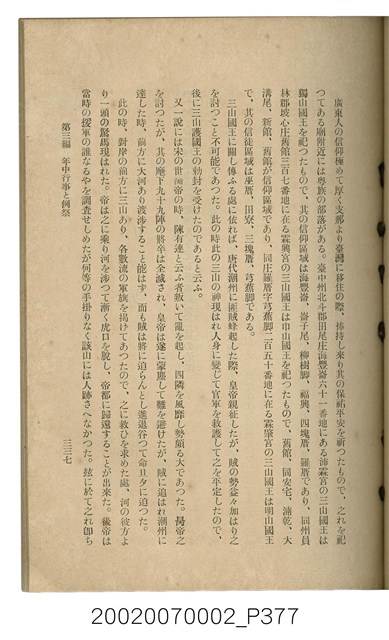 廣東人の信仰極めて厚く支那より臺灣に移住の際、捧持し來り其の保祐平安を祈つたもので、之れを祀
つてある廟附近には粤族の部落がある。臺中州北斗郡田尾庄海豐崙六十一番地にある沛霖宮の三山國王は
獨山國王を祀つたもので、其の信仰區域は海豐崙、崙子尾、柳樹脚、福興、四塊厝、羅厝であり、同州員
林郡坡心庄舊館三百七番地に在る霖興宮の三山國王は巾山國王を祀つたもので、舊館、同安宅、湳乾、大
溝尾、新館、舊館が信仰區域であり、同庄羅厝字芎蕉脚二百五十番地に在る霖肇宮の三山國王は明山國王
で、其の信徒區域は東厝、田寮、三塊厝、芎蕉脚である。
三山國王に關し傳ふる處に依れば、唐代潮州に匪賊蜂起した際、皇帝親征したが、賊の勢益々加はり之
を討つこと不可能であつた。此の時此の三山の神現はれ人身に變じて官軍を救護して之を平定したので、
後に三山護國王の勅封を受けたのであると云ふ。
又一説には宋の世 帝の時、陳有連と云ふ者叛いて亂を起し、四隣を風靡し勢頗る大であつた。 帝之
を討つたが、其の麾下九十九陣の將卒は全滅され、皇帝は遂に蒙塵して難を避けたが、賊に追はれ潮州に
達した時、前方に大河あり渡渉すること能はず、而も賊は將に迫らんとし進退谷つて命旦夕に迫つた。
此の時、對岸の前方に三山あり、各數流の軍旗を揭げてあつたので、之に救ひを求めた處、河の彼方よ
り一頭の駑馬現はれた。帝は之に乘り河を渉つて漸く虎口を脱し、帝都に歸還することが出來た。 帝は
當時の援軍の誰なるやを調査せしめたが何等の手掛りなく該山には人跡さへなかつた。玆に於て之れ卽ち
第三編　年中行事と例祭
三三七
20020070002_P377